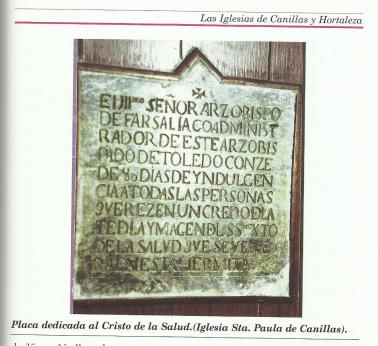 Las Iglesias de Canillas y Hortaleza
El Ill.mo SEÑOR ARZOBISPO
DE FARSALIA COADMINIST
RADOR DE ESTE ARZOBIS
PADO DE TOLEDO CONZE
DE 80 DIAS DE YNDULGEN
CIA A TODAS LAS PERSONAS
QUE REZEN UN CREDO DLA
TE DLA YMAGEN DL SS XTO
DE LA SALUD QUE SE VE
EN ESTA HERMITA
Placa dedicada al Cristo de la Salud.(Iglesia Sta. Paula de Canillas).